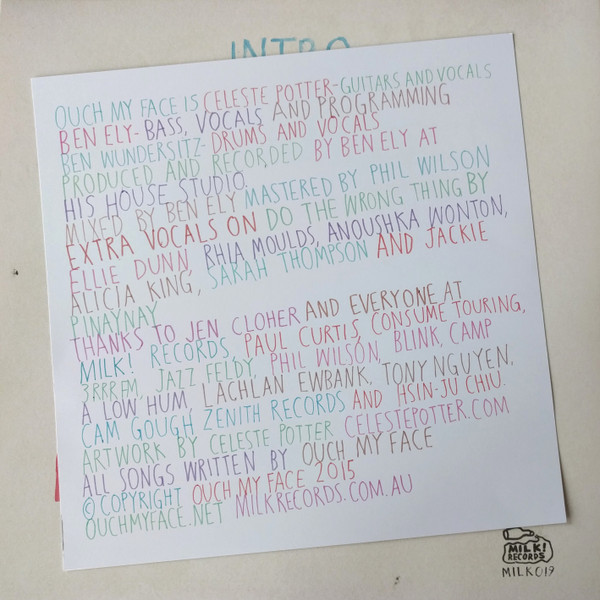 INTRO
OUCH MY FACE IS CELESTE POTTER-GUITARS AND VOCALS
BEN ELY-BASS, VOCALS AND PROGRAMMING
BEN WUNDERSITZ-DRUMS AND VOCALS
PRODUCED AND RECORDED BY BEN ELY AT
HIS HOUSE STUDIO.
MIXED BY BEN ELY MASTERED BY PHIL WILSON
EXTRA VOCALS ON DO THE WRONG THING BY
ELLIE DUNN, RHIA MOULDS, ANOUSHKA WONTON,
ALICIA KING, SARAH THOMPSON AND JACKIE
PINAYNAY
THANKS TO JEN CLOHER AND EVERYONE AT
MILK! RECORDS, PAUL CURTIS, CONSUME TOURING,
3RRR FM, JAZZ FELDY, PHIL WILSON, BLINK, CAMP
A LOW HUM, LACHLAN EWBANK, TONY NGUYEN,
CAM GOUGH ZENITH RECORDS AND HSIN-JU CHIU.
ARTWORK BY CELESTE POTTER CELESTEPOTTER.COM
ALL SONGS WRITTEN BY OUCH MY FACE
© COPYRIGHT OUCH MY FACE 2015
OUCHMYFACE.NET MILKRECORDS.COM.AU
MILK!
RECORDS
MILK019